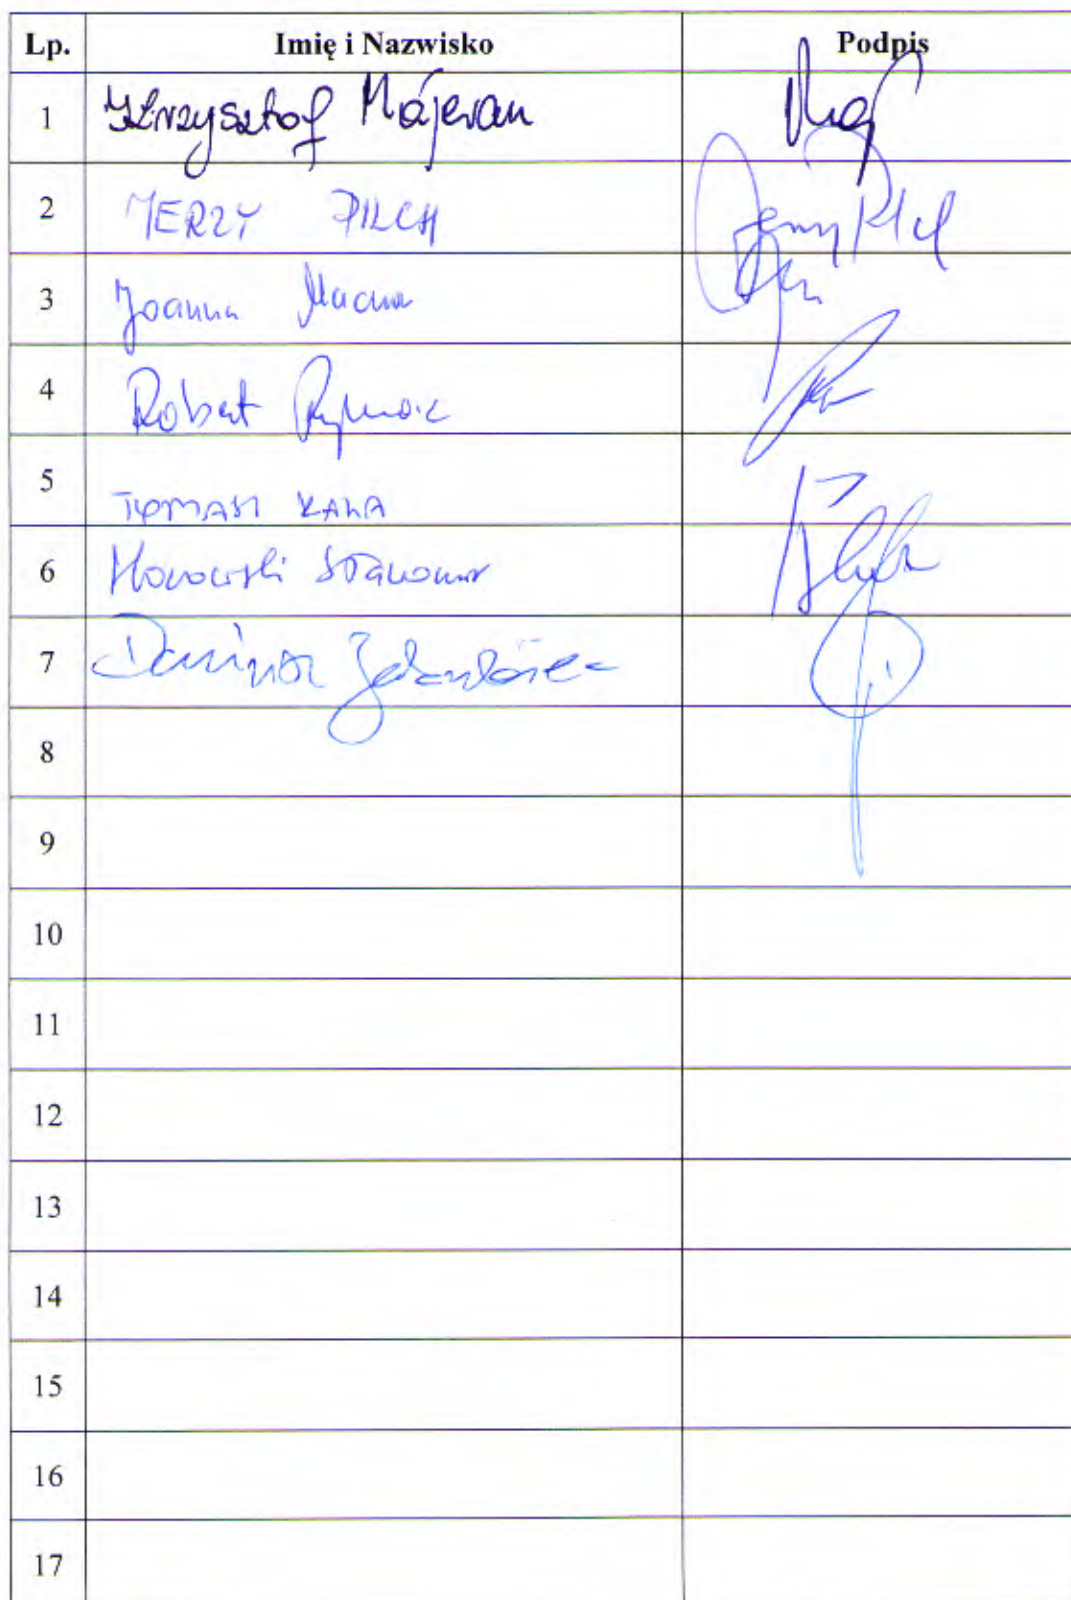 Lp. Imię i Nazwisko Podpis
1 Krzysztof Majeran
2 JERZY PILCH Jerzy Pilch
3 Joanna
4 Robert
5 TOMASZ KAŁA
6 Sławomir
7 Dariusz
8
9
10
11
12
13
14
15
16
17